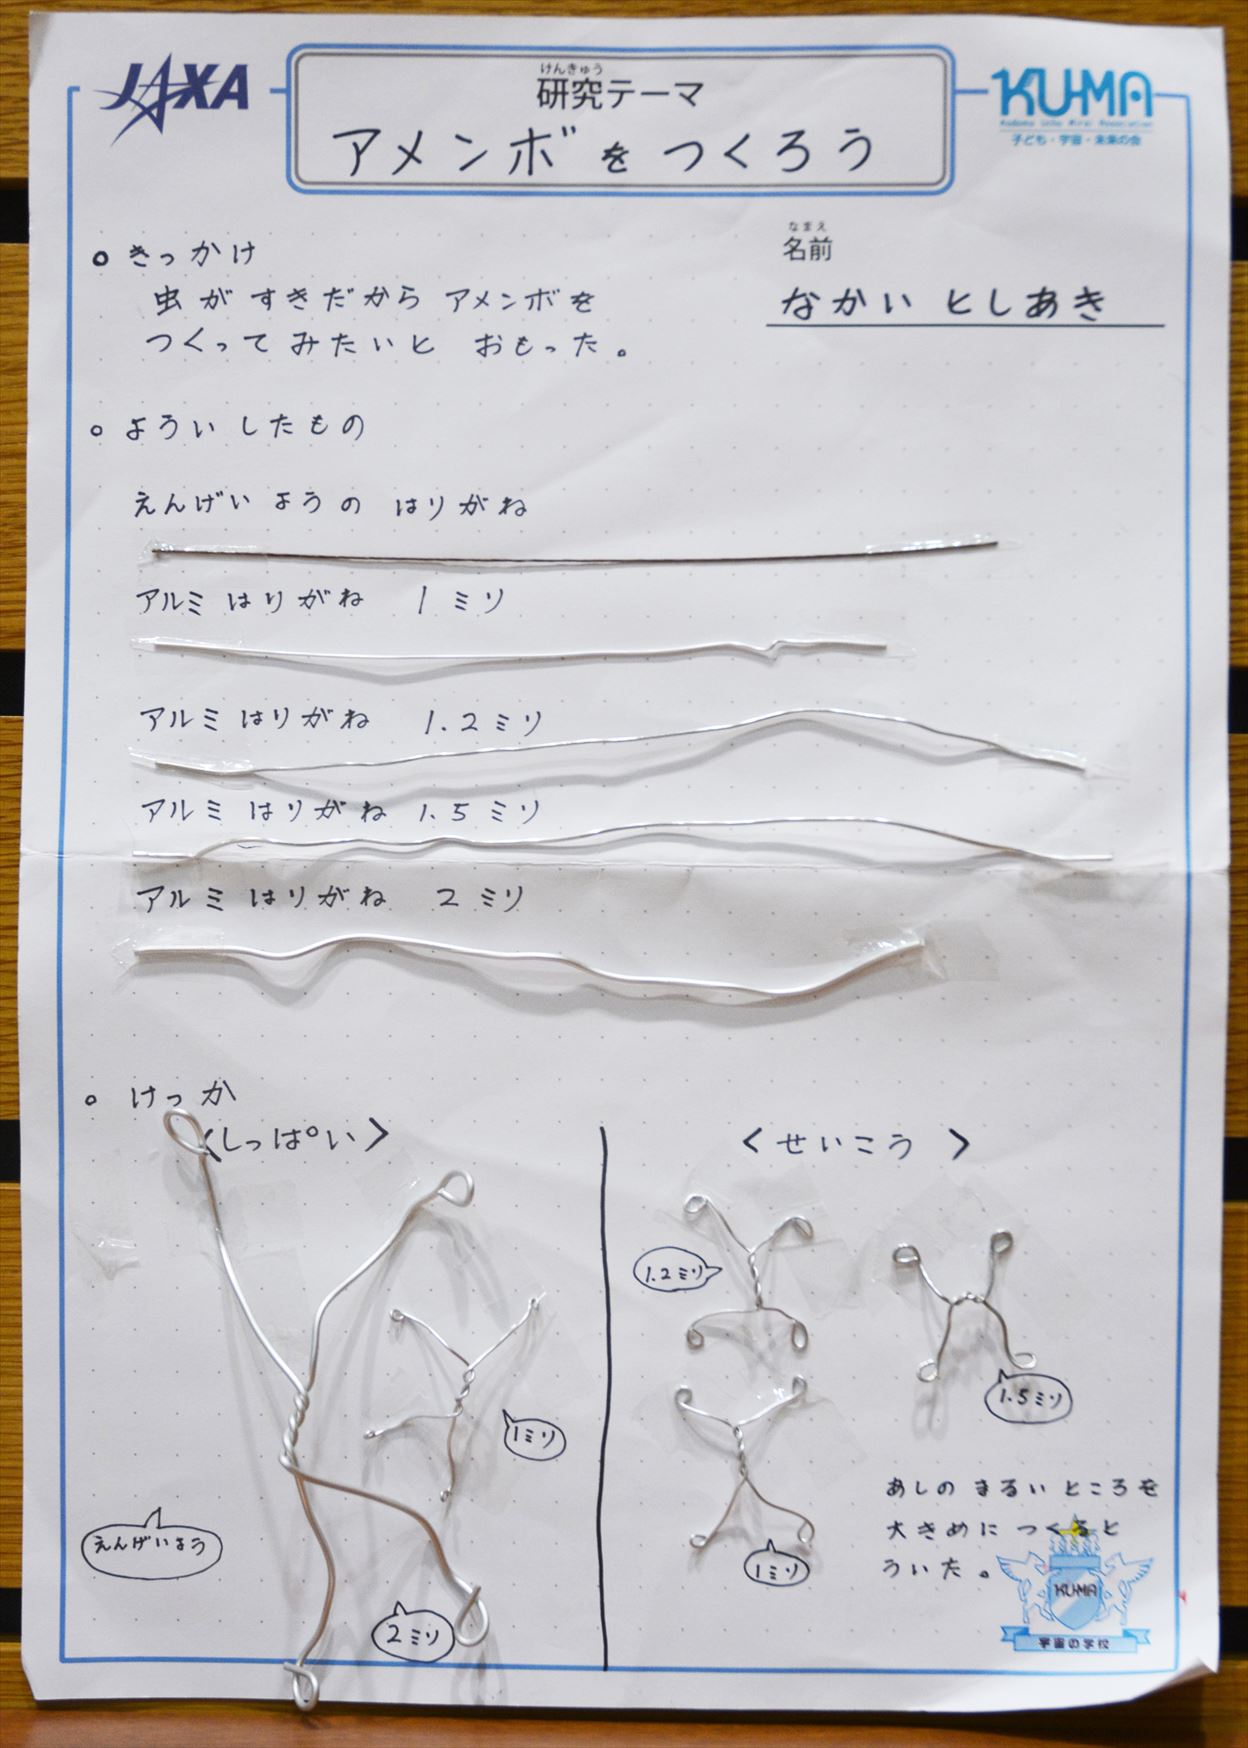 JAXA
けんきゅう
研究テーマ
アメンボをつくろう
KU-MA
Kodomo Uchu Mirai Association
子ども・宇宙・未来の会
なまえ
名前
なかい としあき
○ きっかけ
虫がすきだから アメンボを
つくってみたいと おもった。
○ よういしたもの
えんげいようの はりがね
アルミはりがね 1ミリ
アルミはりがね 1.2ミリ
アルミはりがね 1.5ミリ
アルミはりがね 2ミリ
○ けっか
<しっぱい>
1ミリ
えんげいよう
2ミリ
<せいこう>
1.2ミリ
1.5ミリ
1ミリ
あしのまるいところを
大きめにつくると
ういた。
KU-MA
宇宙の学校